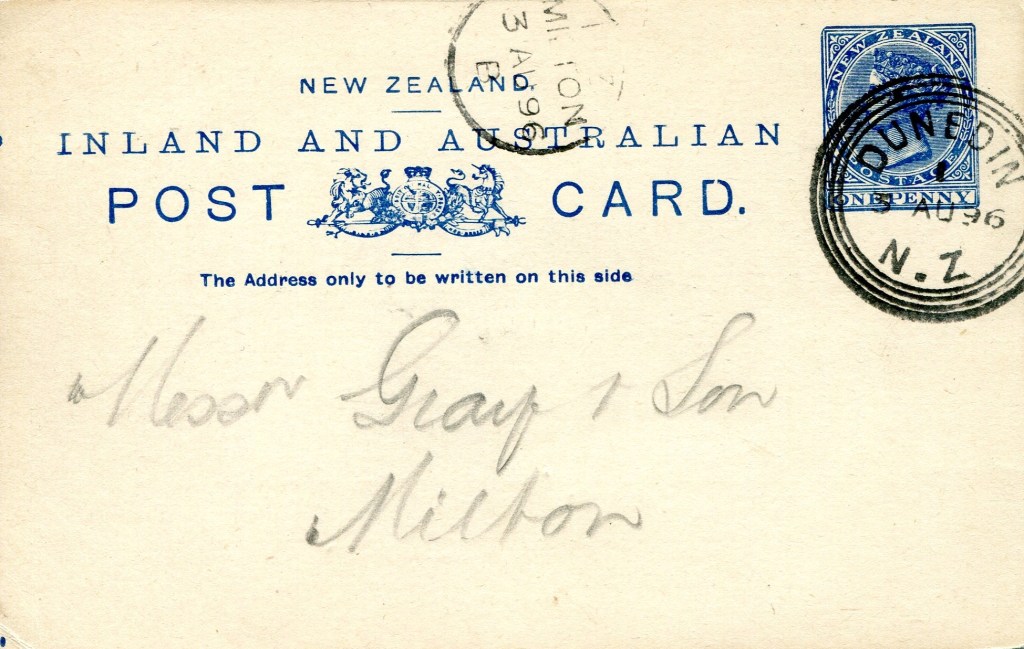 NEW ZEALAND
POSTAGE
ONE PENNY
DUNEDIN
3 AU 96
N.Z
MILTON
3 AU 96
B
NEW ZEALAND
INLAND AND AUSTRALIAN
POST CARD.
The Address only to be written on this side
Messrs Gray & Son
Milton